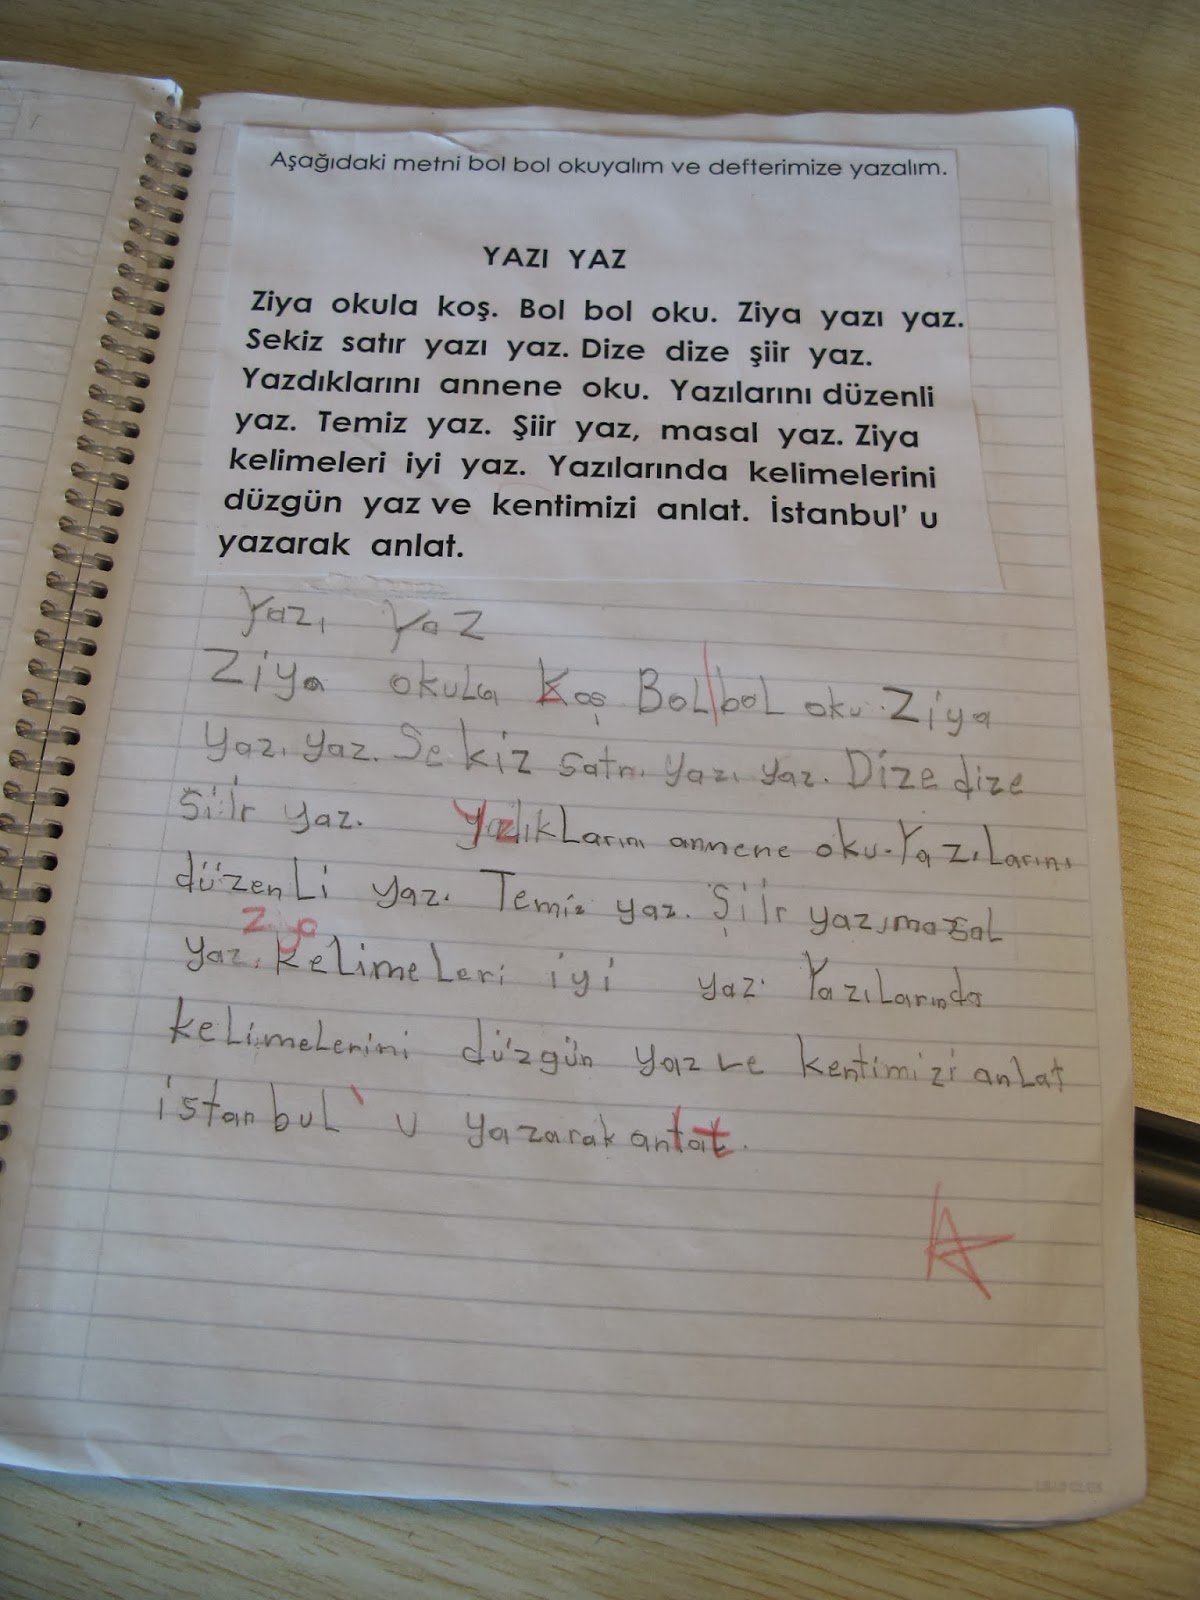 Aşağıdaki metni bol bol okuyalım ve defterimize yazalım.
YAZI YAZ
Ziya okula koş. Bol bol oku. Ziya yazı yaz.
Sekiz satır yazı yaz. Dize dize şiir yaz.
Yazdıklarını annene oku. Yazılarını düzenli
yaz. Temiz yaz. Şiir yaz, masal yaz. Ziya
kelimeleri iyi yaz. Yazılarında kelimelerini
düzgün yaz ve kentimizi anlat. İstanbul' u
yazarak anlat.
Yazı Yaz
Ziya okula Koş Bol bol oku. Ziya
yazı yaz. Sekiz satrı yazı yaz. Dize dize
Siir yaz. Yazdıkların annene oku. Yazılarını
düzenli yaz. Temiz yaz. Şiir yaz, masal
Ziya
yaz. kelimeleri iyi yaz. Yazılarında
kelimelerini düzgün yaz ve kentimizi anlat
istanbul' u yazarak antat.